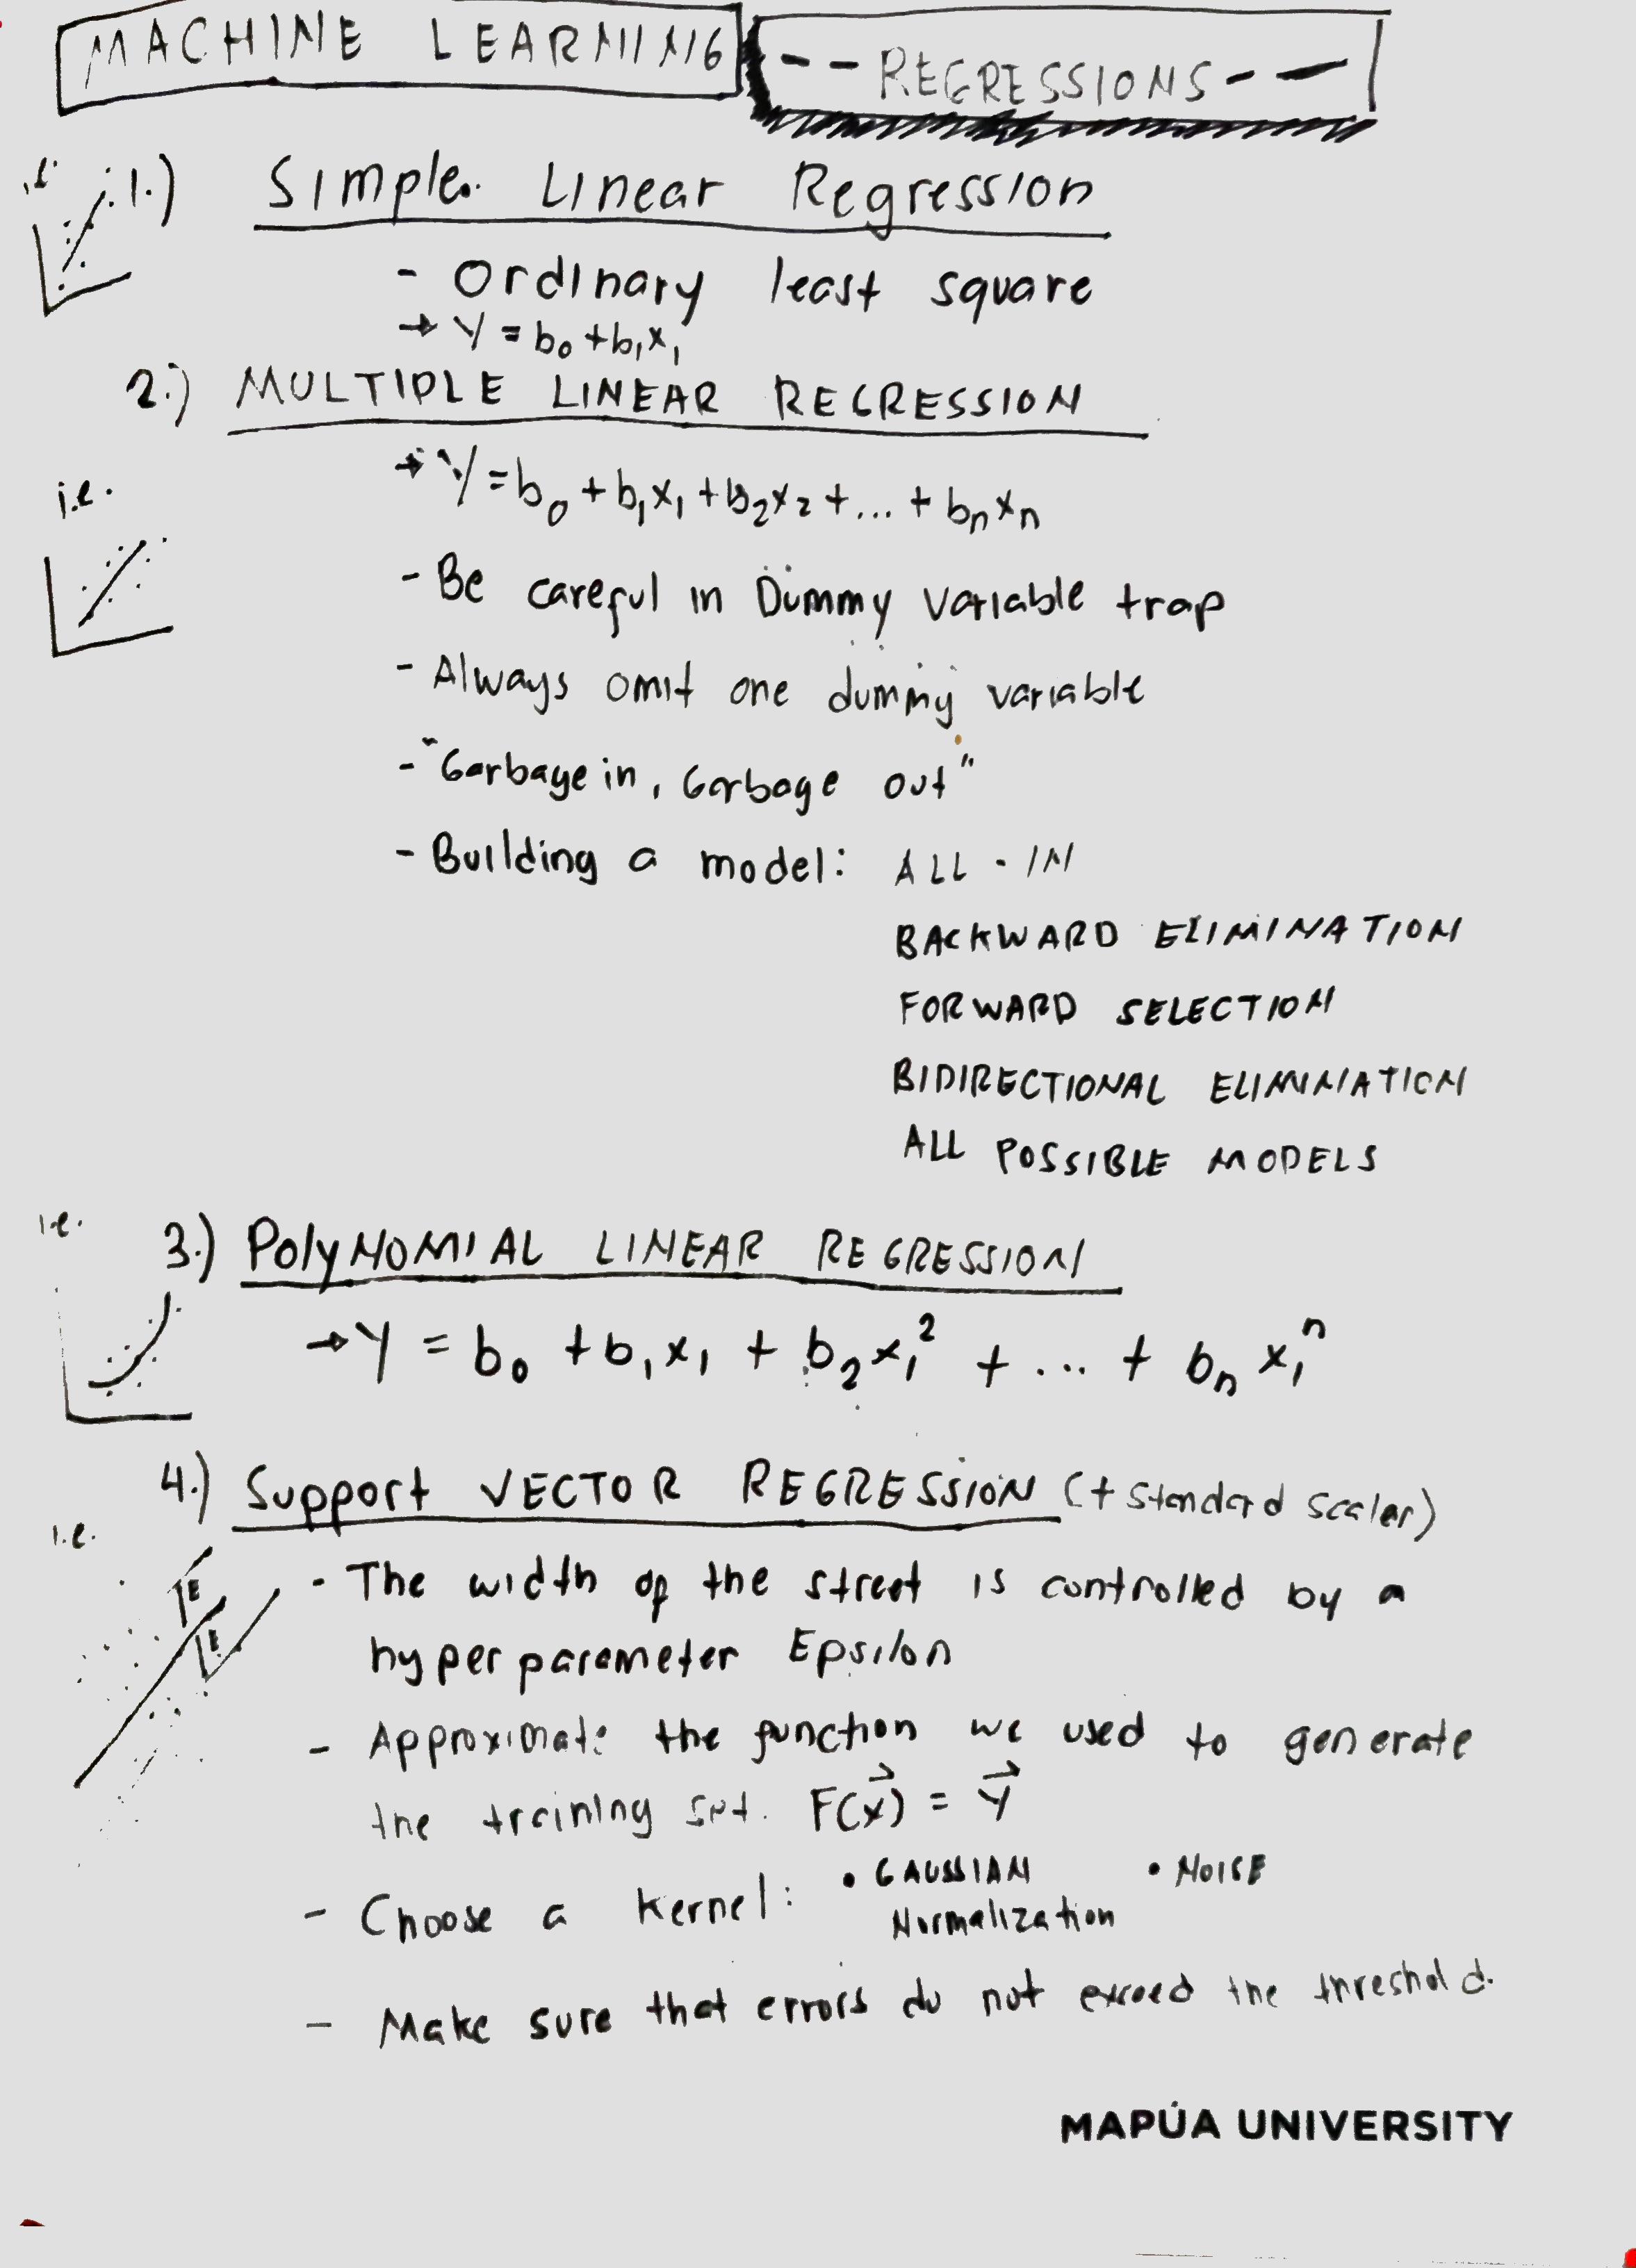 MACHINE LEARNING
--REGRESSIONS--
1.) Simple Linear Regression
- Ordinary least square
→ Y = b₀ + b₁x₁
2.) MULTIPLE LINEAR REGRESSION
i.e.
→ Y = b₀ + b₁x₁ + b₂x₂ + ... + bₙxₙ
- Be careful in Dummy variable trap
- Always omit one dummy variable
- "Garbage in, Garbage out"
- Building a model: ALL-IN
BACKWARD ELIMINATION
FORWARD SELECTION
BIDIRECTIONAL ELIMINATION
ALL POSSIBLE MODELS
i.e.
3.) PolyNOMIAL LINEAR REGRESSION
→ Y = b₀ + b₁x₁ + b₂x₁² + ... + bₙx₁ⁿ
4.) Support VECTOR REGRESSION (+ Standard Scaler)
i.e.
- The width of the street is controlled by a
hyperparameter Epsilon
E
E
- Approximate the function we used to generate
the training set. F(x⃗) = y⃗
- Choose a Kernel: • GAUSSIAN • NOISE
Normalization
- Make sure that errors do not exceed the threshold.
MAPÚA UNIVERSITY